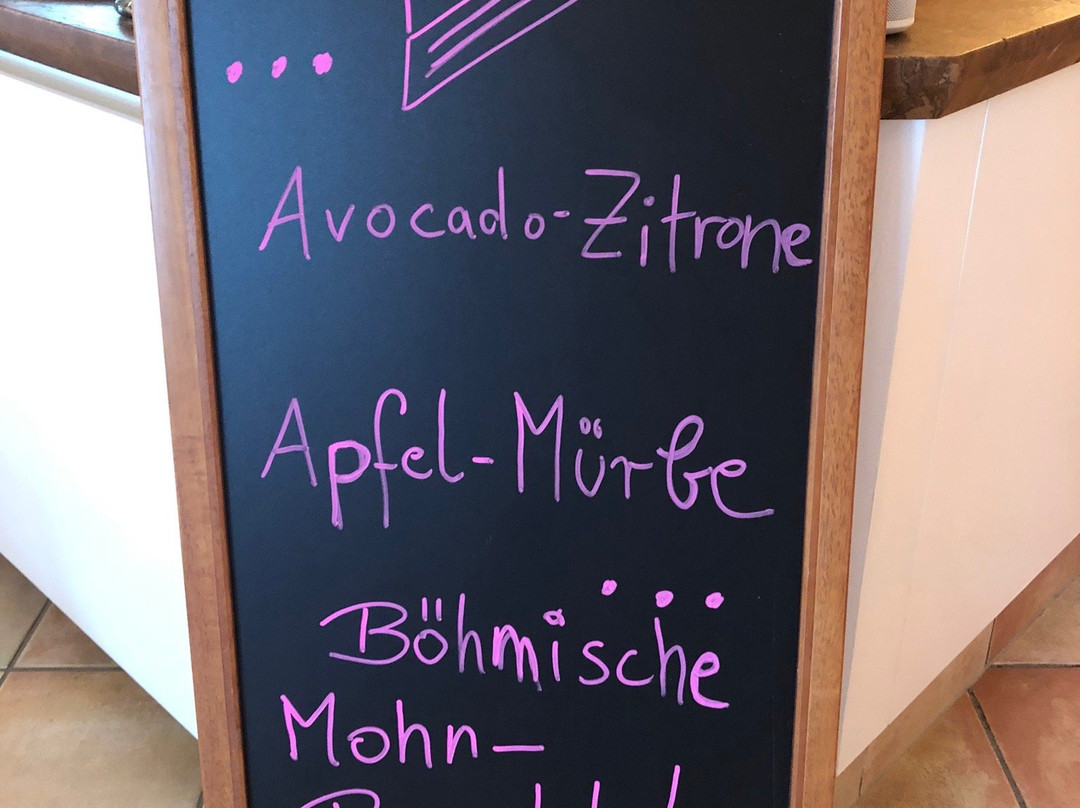 ...
Avocado-Zitrone
Apfel-Mürbe
...
Böhmische
Mohn-